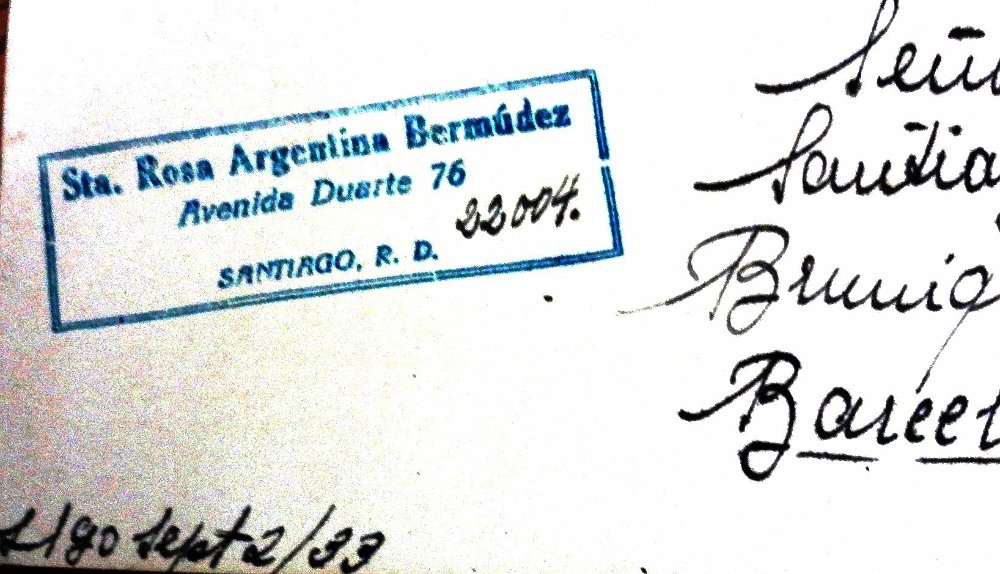 Sta. Rosa Argentina Bermúdez
Avenida Duarte 76
22004.
SANTIAGO, R. D.
Señ
Santia
Bruniq
Barce
Stgo sept 2/33